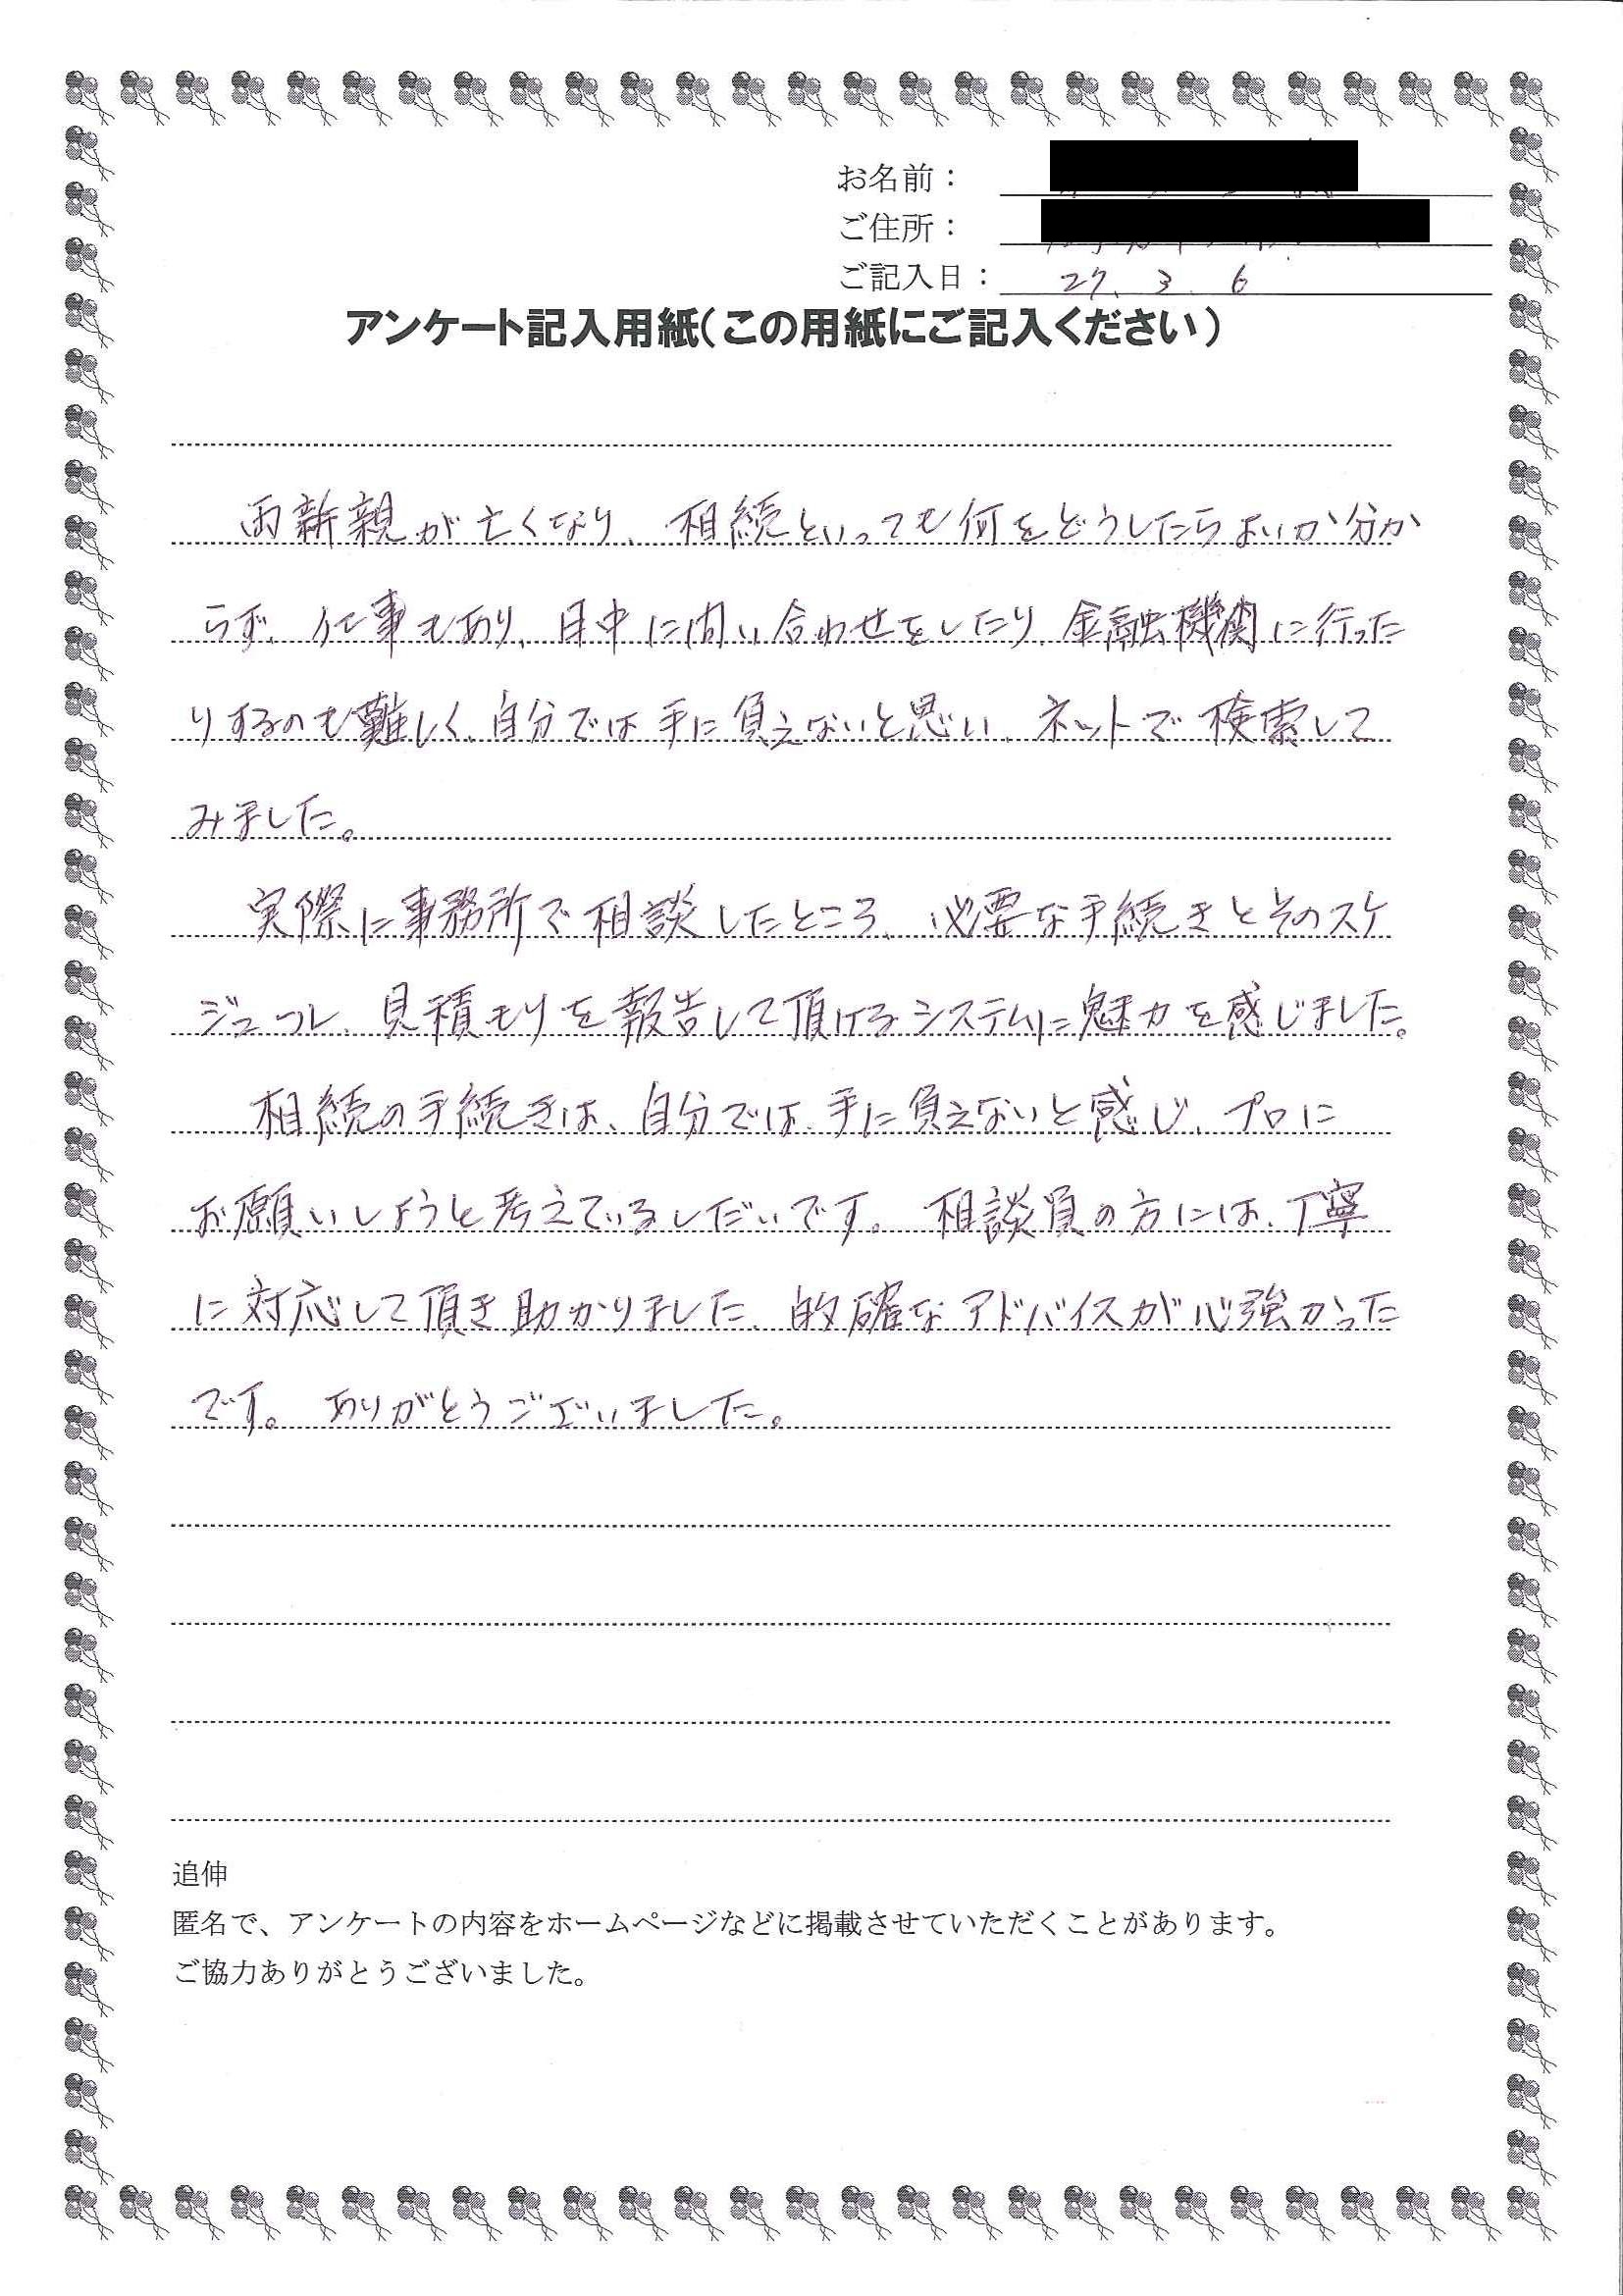 お名前：
ご住所：
ご記入日： 27. 3. 6
アンケート記入用紙（この用紙にご記入ください）
両新親が亡くなり、相続といっても何をどうしたらよいか分か
らず、仕事もあり、日中に問い合わせをしたり、金融機関に行った
りするのも難しく、自分では手に負えないと思い、ネットで検索して
みました。
実際に事務所で相談したところ、必要な手続きとそのスケ
ジュール、見積もりを報告して頂けるシステムに魅力を感じました。
相続の手続きは、自分では手に負えないと感じ、プロに
お願いしようと考えているしだいです。相談員の方には、丁寧
に対応して頂き助かりました。的確なアドバイスが心強かった
です。ありがとうございました。
追伸
匿名で、アンケートの内容をホームページなどに掲載させていただくことがあります。
ご協力ありがとうございました。